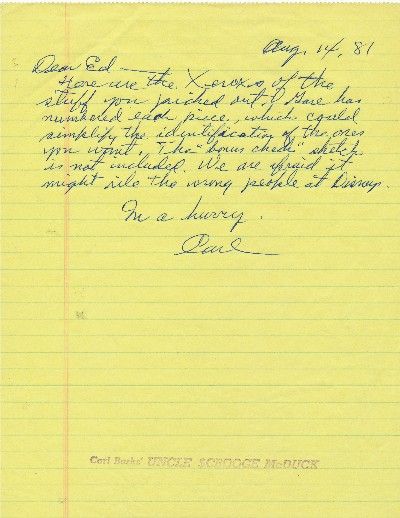 Aug. 14, 81
Dear Ed —
Here are the Xeroxs of the
stuff you picked out. Gare has
numbered each piece, which could
simplify the identification of the ones
you want. The "bonus check" sketch
is not included. We are afraid it
might rile the wrong people at Disneys.
In a hurry.
Carl
Carl Barks' UNCLE SCROOGE McDUCK